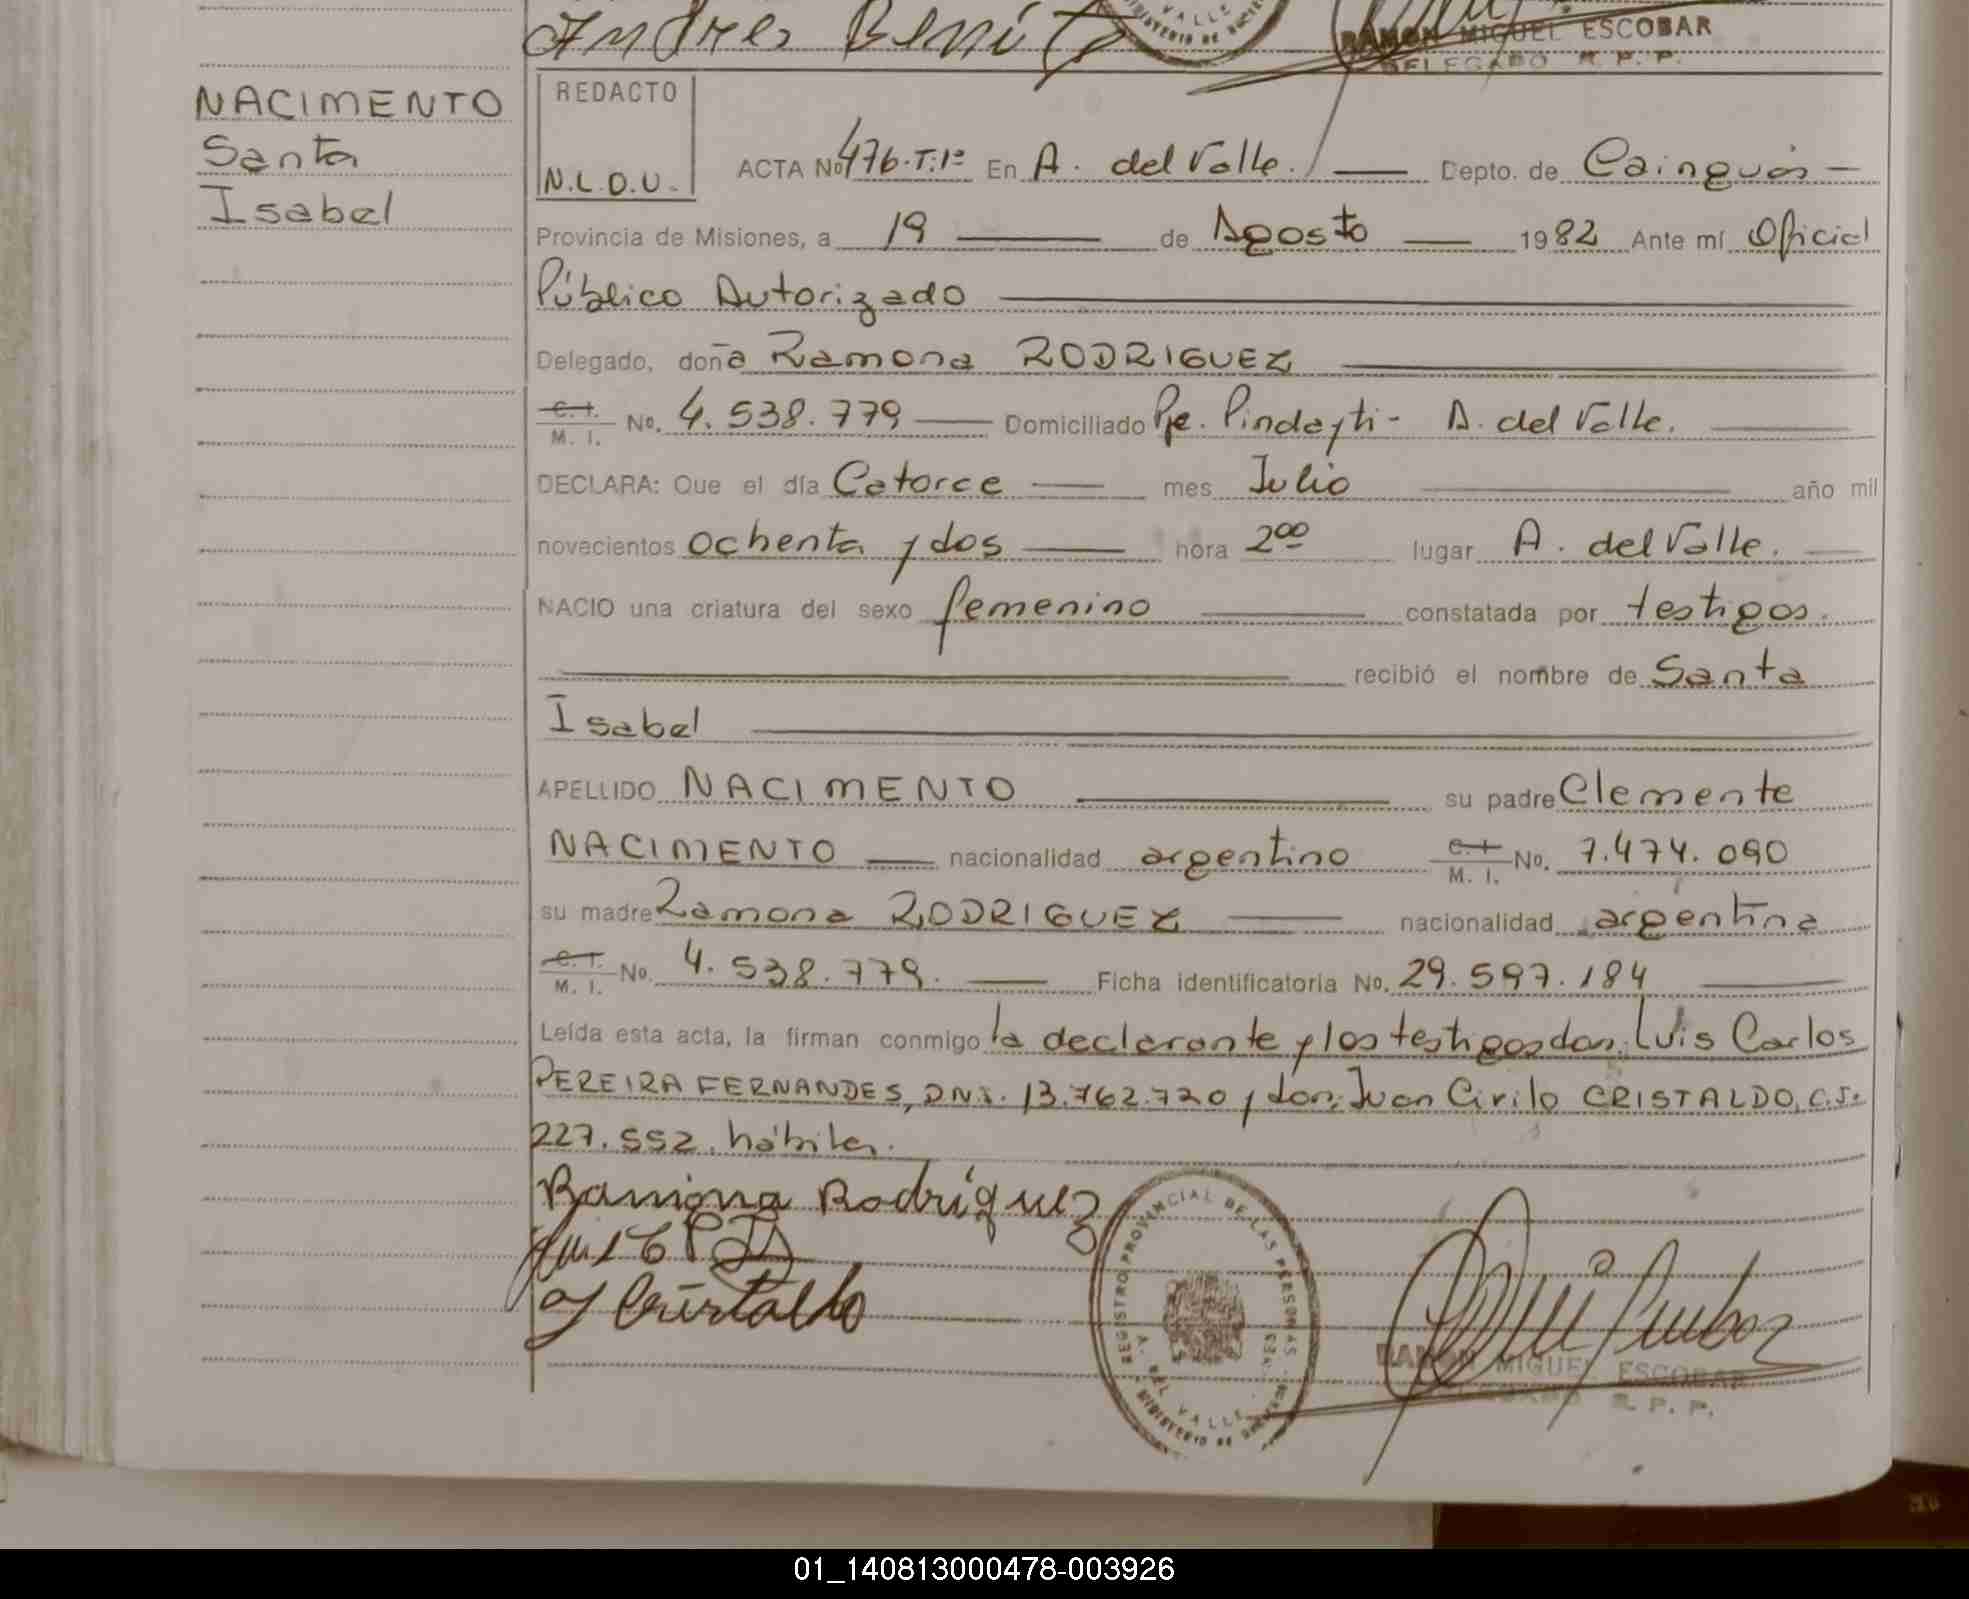 Andres Benitz
VALLE
MINISTERIO DE
RAMON MIGUEL ESCOBAR
DELEGADO R. P. P.
NACIMENTO
Santa
Isabel
REDACTO
N.L.D.U.
ACTA No 476.T:1º En A. del Valle. Depto. de Cainguás
Provincia de Misiones, a 19 de Agosto 1982 Ante mí Oficial
Público Autorizado
Delegado, doña Ramona RODRIGUEZ
C. I. M. I. No. 4.538.779 Domiciliado Pje. Pindayti - A. del Valle.
DECLARA: Que el día Catorce mes Julio año mil
novecientos ochenta y dos hora 200 lugar A. del Valle.
NACIO una criatura del sexo femenino constatada por testigos.
recibió el nombre de Santa
Isabel
APELLIDO NACIMENTO su padre Clemente
NACIMENTO nacionalidad argentino C. I. M. I. No. 7.474.090
su madre Ramona RODRIGUEZ nacionalidad argentina
C. I. M. I. No. 4.538.779. Ficha identificatoria No. 29.597.184
Leída esta acta, la firman conmigo la declarante y los testigos don: Luis Carlos
PEREIRA FERNANDES, DNI. 13.762.720 y don: Juan Cirilo CRISTALDO, C.I.
227.552. hábiles.
Ramona Rodríguez
Cristaldo
REGISTRO PROVINCIAL DE LAS PERSONAS
A. DEL VALLE
MINISTERIO DE
RAMON MIGUEL ESCOBAR
DELEGADO R. P. P.
01_140813000478-003926